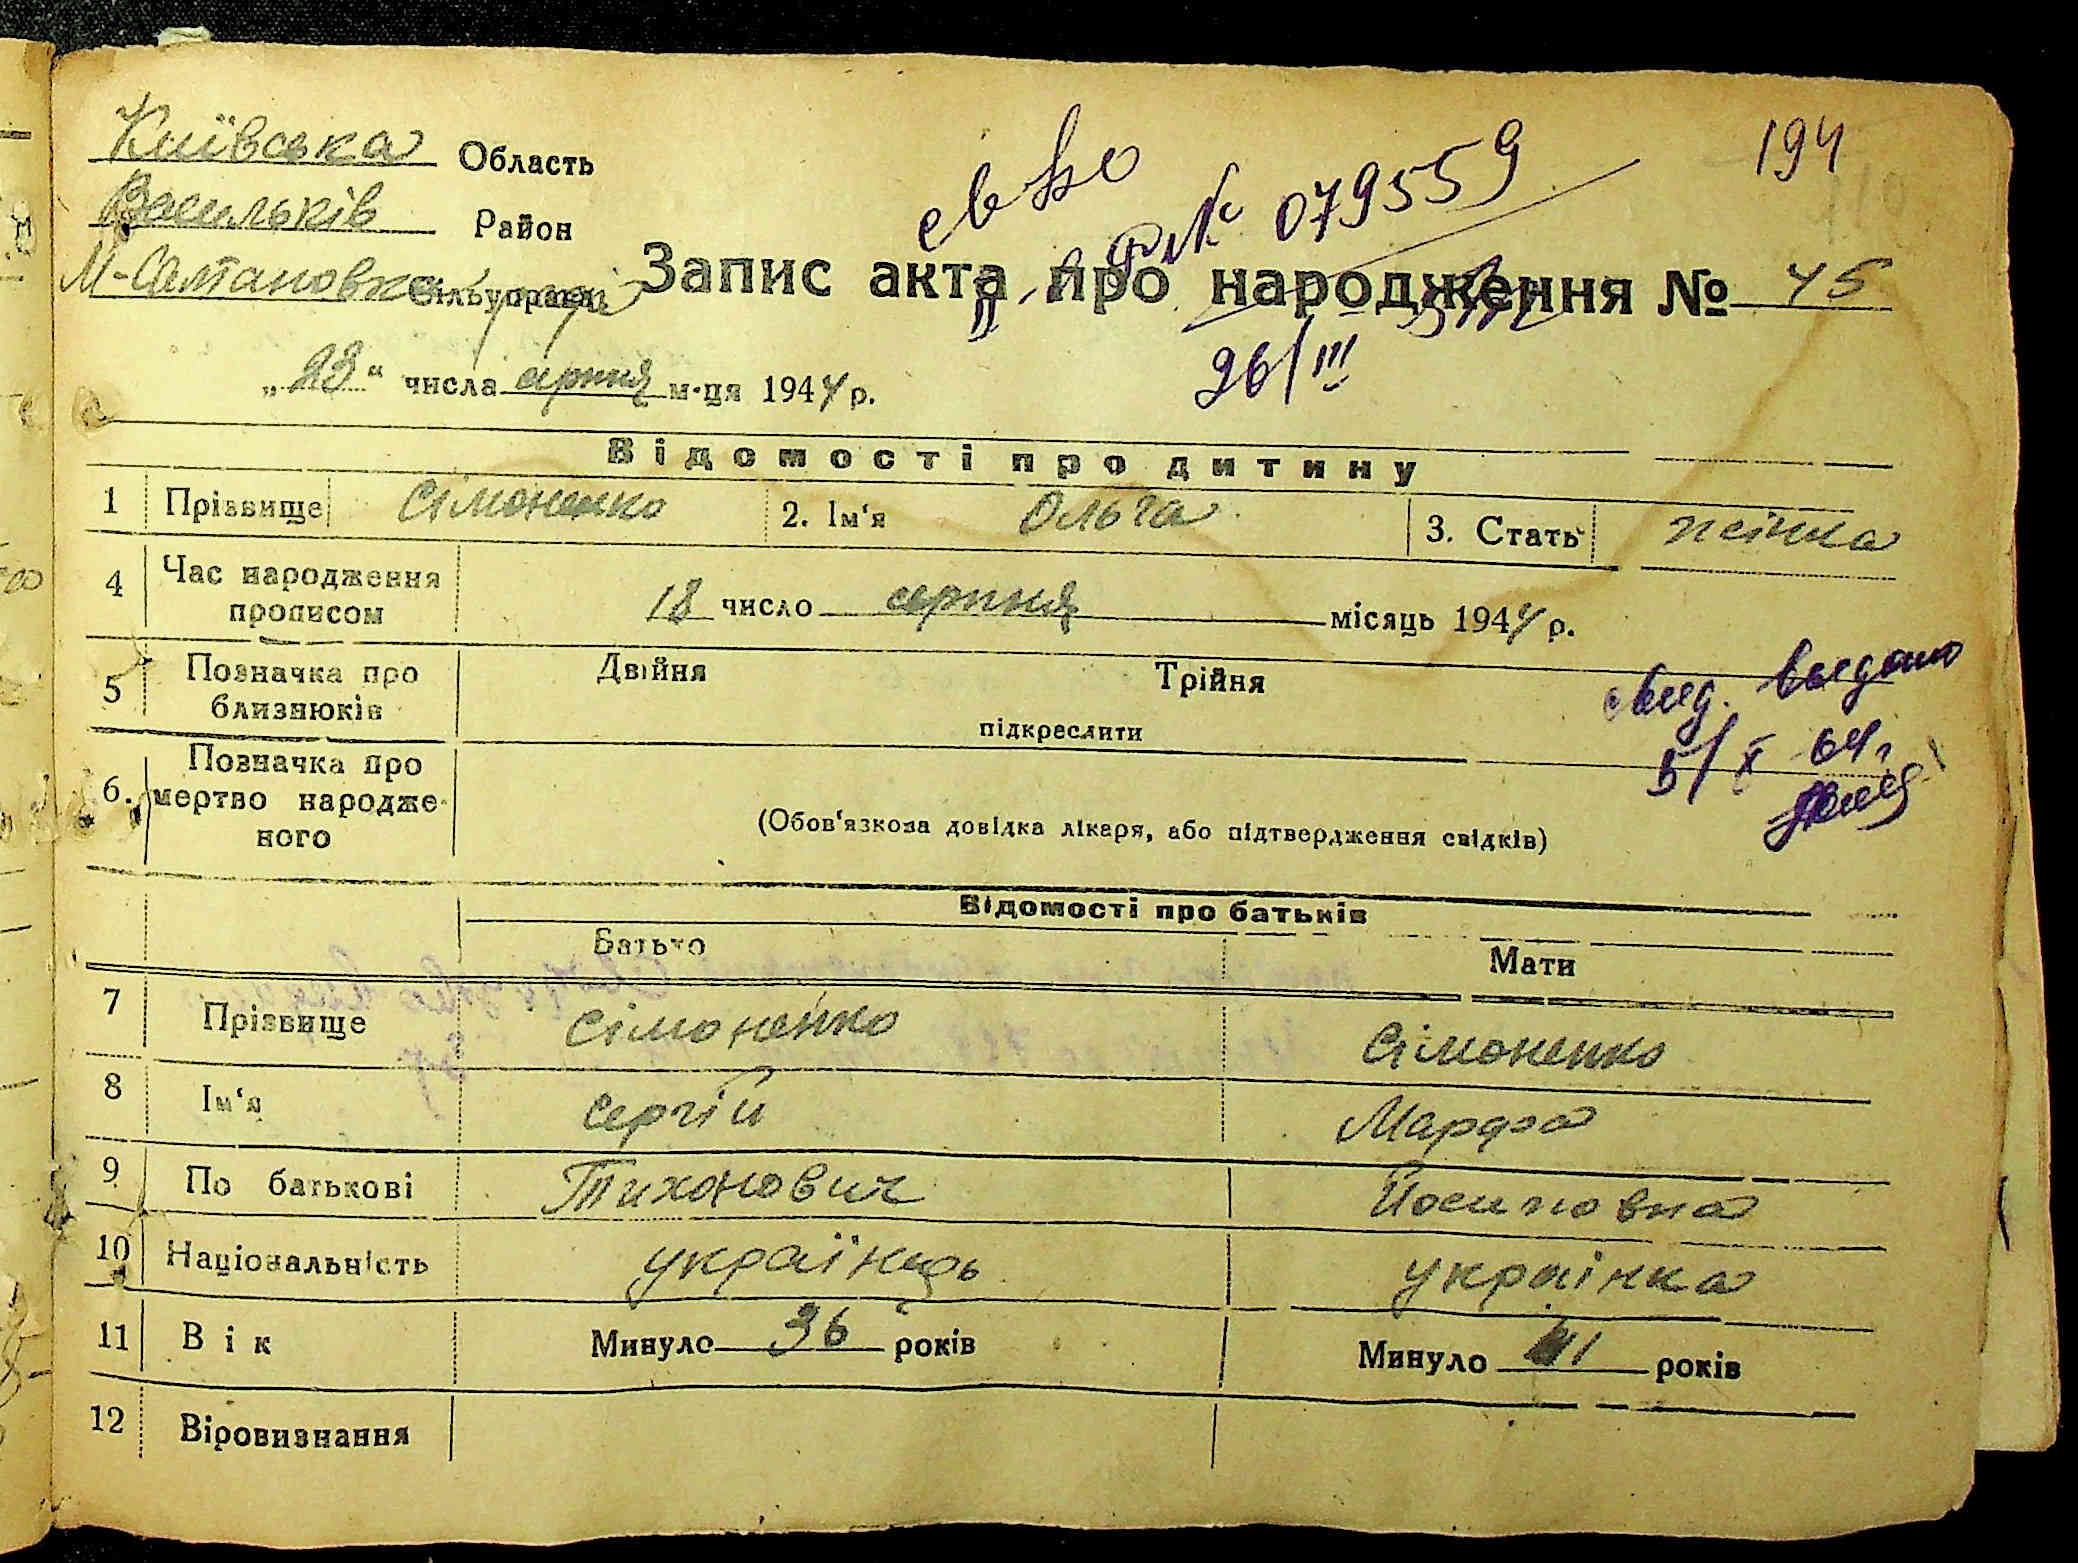 Київська Область
194
Васильків Район
св-во
№ 079559
М-Салтановка Сільуправа
Запис акта про народження № 45
26/III
„23“ числа серпня м-ця 1944 р.
Відомості про дитину
1 Прізвище Сімоненко 2. Ім‘я Ольга 3. Стать жінка
4 Час народження прописом 18 число серпня місяць 1944 р.
5 Позначка про близнюків Двійня Трійня
підкреслити
свид. выдано
5/X 64 г.
6. Позначка про мертво народже-ного
(Обов‘язкова довідка лікаря, або підтвердження свідків)
Відомості про батьків
Батько Мати
7 Прізвище Сімоненко Сімоненко
8 Ім‘я Сергій Марфа
9 По батькові Тихонович Йосиповна
10 Національність українець українка
11 Вік Минуло 36 років Минуло 41 років
12 Віровизнання